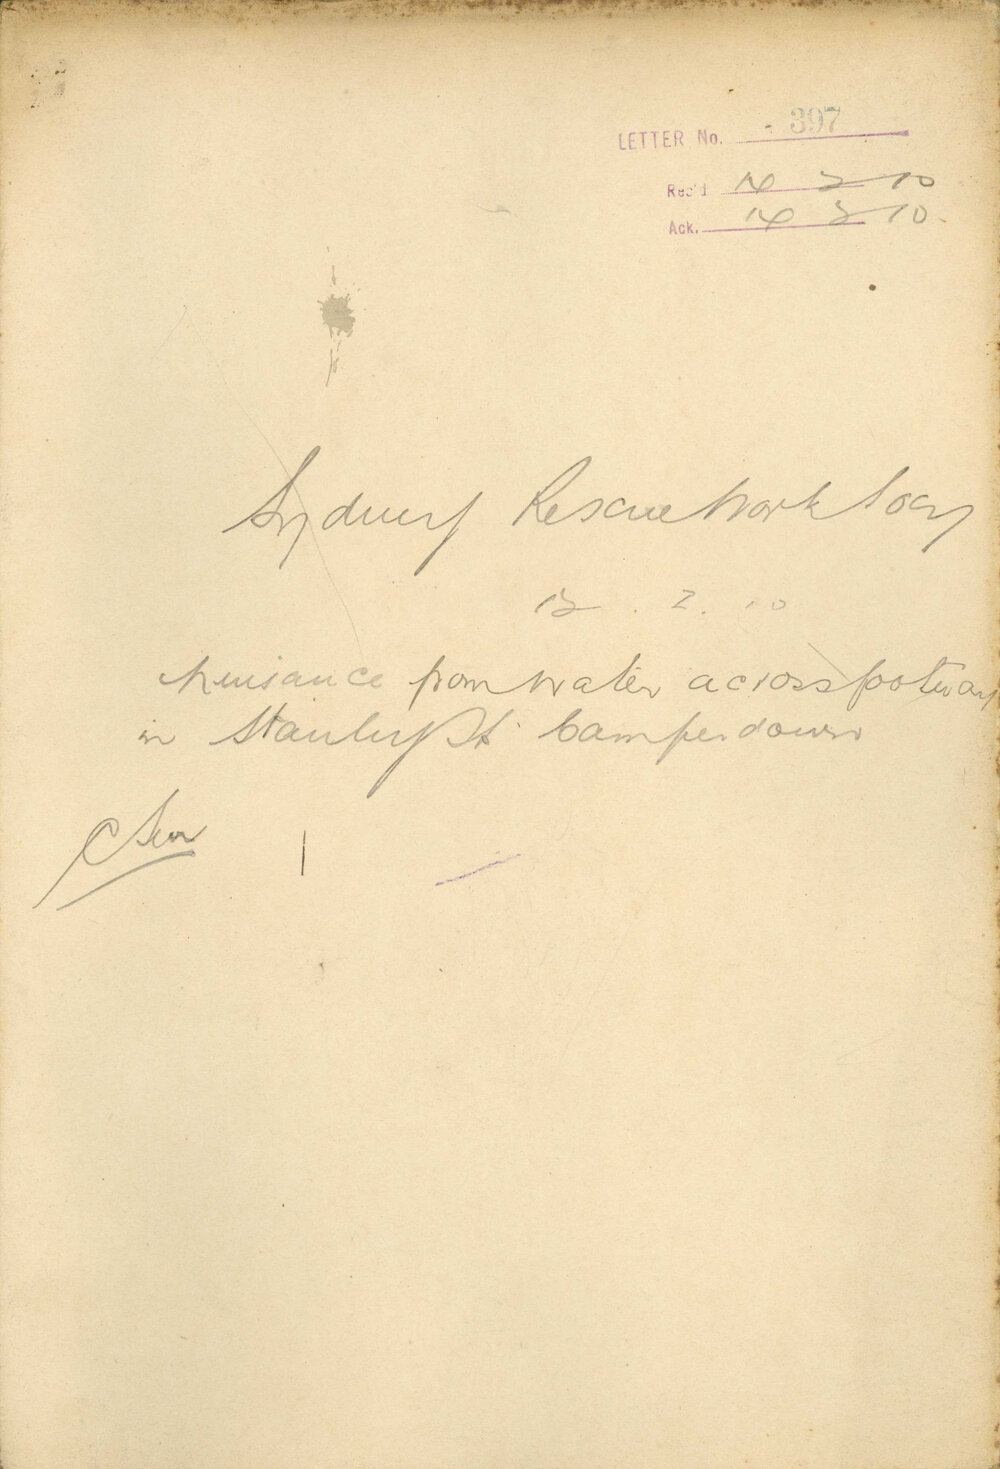 LETTER No. 397
Rec'd 14 2 10
Ack. 14 2 10
Sydney Rescue Work Socy
12 . 2. 10
Nuisance from water across footway
in Stanley St Camperdown